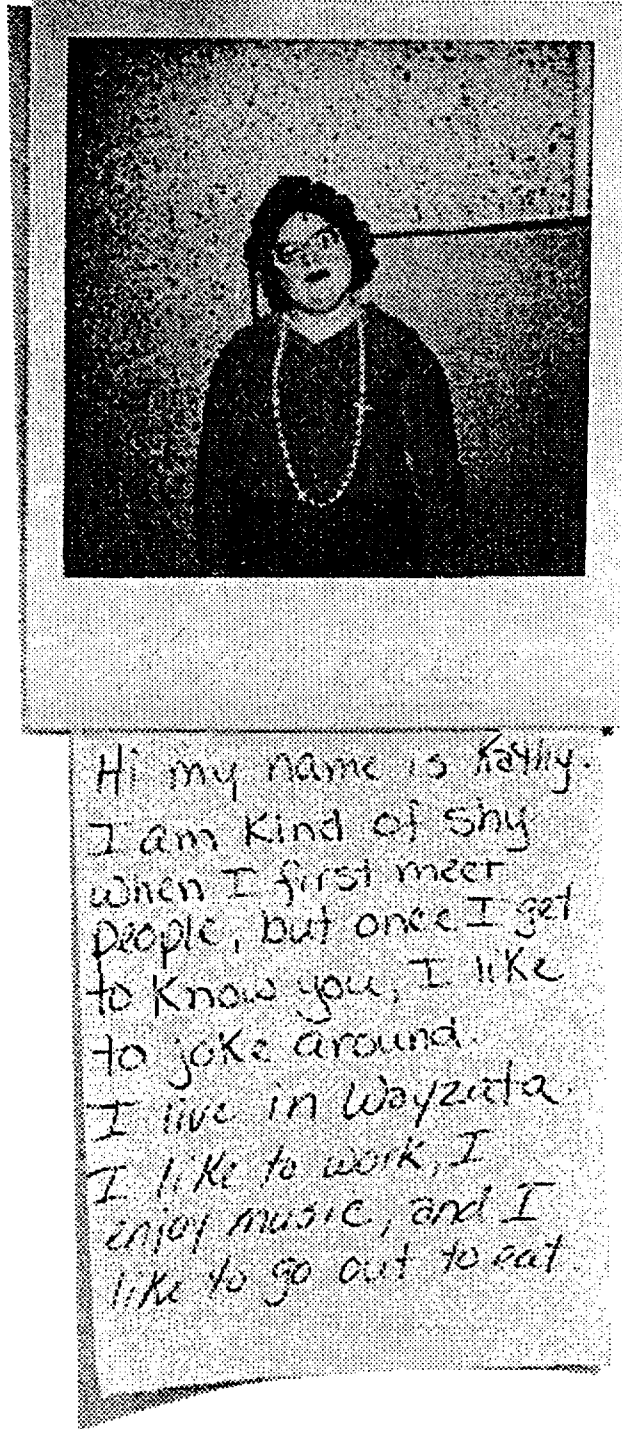 Hi my name is Kathy.
I am kind of shy
when I first meet
people, but once I get
to know you, I like
to joke around.
I live in Wayzata.
I like to work, I
enjoy music, and I
like to go out to eat